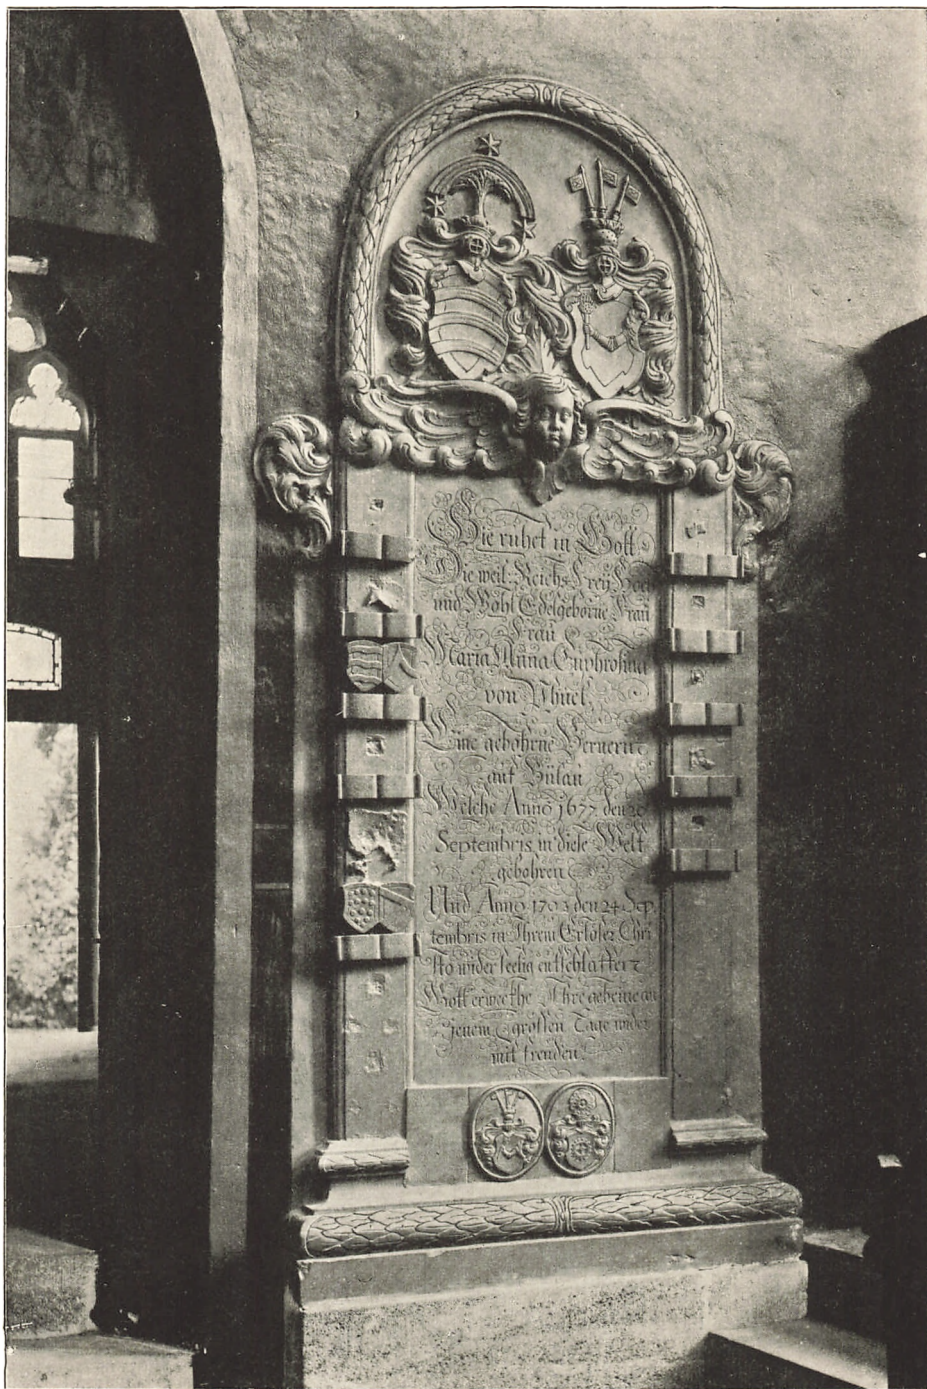 Hie ruhet in Gott
Die weil. Reichs Freÿ Hoch
und Wohl Edelgeborne Frau
Frau
Maria Anna Euphrosina
von
Eine gebohrne
auf Bülau
Welche Anno 1677 den 26
Septembris in diese Welt
gebohren
Und Anno 1703 den 24 Sep
tembris in Ihrem Erlöser Chri
sto wider seelig entschlaffen
Gott erwecke Ihre gebeine an
jenem großen Tage wider
mit freuden